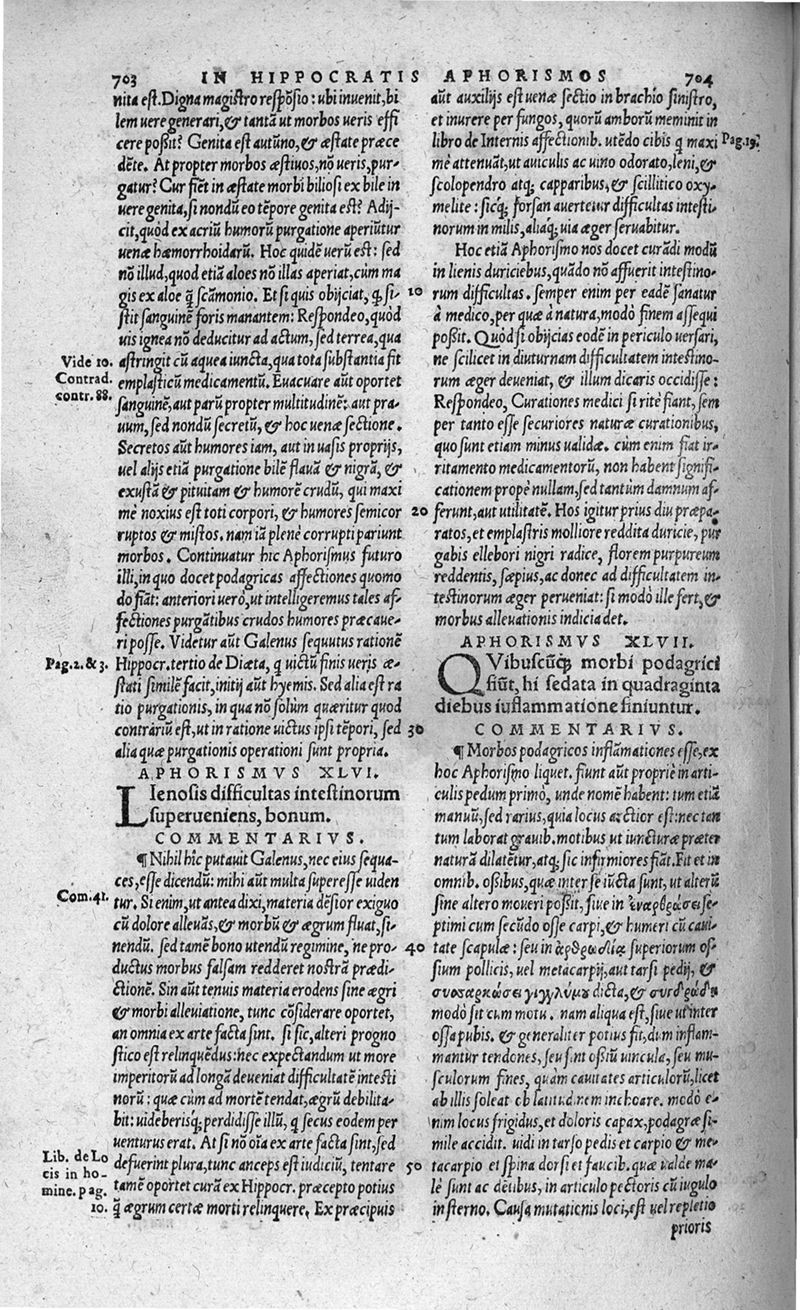 703 IN HIPPOCRATIS APHORISMOS 704
nita est. Digna magistro respõsio: ubi inuenit, bi
lem uere generari, & tantã ut morbos ueris effi
cere poßit? Genita est autũno, & æstate præce
dẽte. At propter morbos æstiuos, nõ ueris, pur-
gatur? Cur fiẽt in æstate morbi biliosi ex bile in
uere genita, si nondũ eo tẽpore genita est? Adij-
cit, quòd ex acriũ humorũ purgatione aperiũtur
uenæ hæmorrhoidarũ. Hoc quidẽ uerũ est: sed
nõ illud, quod etiã aloes nõ illas aperiat, cùm ma
gis ex aloe q̃ scãmonio. Et si quis obijciat, q̨ si- 10
stit sanguinẽ foris manantem: Respondeo, quòd
uis ignea nõ deducitur ad actum, sed terrea, qua
Vide 10. astringit cũ aquea iuncta, qua tota substantia fit
Contrad. emplasticũ medicamentũ. Euacuare aũt oportet
contr. 88. sanguinẽ, aut parũ propter multitudinẽ: aut pra-
uum, sed nondũ secretũ, & hoc uenæ sectione.
Secretos aũt humores iam, aut in uasis proprijs,
uel alijs etiã purgatione bilẽ flauã & nigrã, &
exustã & pituitam & humorẽ crudũ, qui maxi
mè noxius est toti corpori, & humores semicor 20
ruptos & mistos. nam iã plenè corrupti pariunt
morbos. Continuatur hic Aphorismus futuro
illi, in quo docet podagricas affectiones quomo
do fiãt: anteriori uerò, ut intelligeremus tales af-
fectiones purgãtibus crudos humores præcaue-
ri posse. Videtur aũt Galenus sequutus rationẽ
Pag. 2. & 3. Hippocr. tertio de Diæta, q uictũ finis ueris æ-
stati similẽ facit, initij aũt hyemis. Sed alia est ra
tio purgationis, in qua nõ solùm quæritur quod
contrariũ est, ut in ratione uictus ipsi tẽpori, sed 30
alia quæ purgationis operationi sunt propria.
APHORISMVS XLVI.
LIenosis difficultas intestinorum
superueniens, bonum.
COMMENTARIVS.
¶ Nihil hîc putauit Galenus, nec eius sequa-
ces, esse dicendũ: mihi aũt multa superesse uiden
Com. 41. tur. Si enim, ut antea dixi, materia dẽsior exiguo
cũ dolore alleuãs, & morbũ & ægrum fluat, si-
nendũ. sed tamẽ bono utendũ regimine, ne pro- 40
ductus morbus falsam redderet nostrã prædi-
ctionẽ. Sin aũt tenuis materia erodens sine ægri
& morbi alleuiatione, tunc cõsiderare oportet,
an omnia ex arte facta sint. si sic, alteri progno
stico est relinquẽdus: nec expectandum ut more
imperitorũ ad longã deueniat difficultatẽ intesti
norũ: quæ cùm ad mortẽ tendat, ægrũ debilita-
bit: uideberisq́; perdidisse illũ, q secus eodem per
uenturus erat. At si nõ oĩa ex arte facta sint, sed
Lib. de Lo defuerint plura, tunc anceps est iudiciũ, tentare 50
cis in ho- tamẽ oportet curã ex Hippocr. præcepto potius
mine. pag. q̃ ægrum certæ morti relinquere. Ex præcipuis
10.
aũt auxilijs est uenæ sectio in brachio sinistro,
et inurere per fungos, quorũ amborũ meminit in
libro de Internis affectionib. utẽdo cibis q maxi Pag. 19.
mè attenuãt, ut auiculis ac uino odorato, leni, &
scolopendro atq; capparibus, & scillitico oxy-
melite: sicq́; forsan auertetur difficultas intesti-
norum in milis, aliaq́; uia æger seruabitur.
Hoc etiã Aphorismo nos docet curãdi modũ
in lienis duriciebus, quãdo nõ affuerit intestino-
rum difficultas. semper enim per eadẽ sanatur
à medico, per quæ à natura, modò finem assequi
poßit. Quòd si obijcias eodẽ in periculo uersari,
ne scilicet in diuturnam difficultatem intestino-
rum æger deueniat, & illum dicaris occidisse:
Respondeo, Curationes medici si ritè fiant, sem
per tanto esse securiores naturæ curationibus,
quo sunt etiam minus ualidæ. cùm enim fiat ir-
ritamento medicamentorũ, non habent signifi-
cationem propè nullam, sed tantùm damnum af-
ferunt, aut utilitatẽ. Hos igitur prius diu præpa-
ratos, et emplastris molliore reddita duricie, pur
gabis ellebori nigri radice, florem purpureum
reddentis, sæpius, ac donec ad difficultatem in-
testinorum æger perueniat: si modò ille fert, &
morbus alleuationis indicia det.
APHORISMVS XLVII.
QVibuscũq; morbi podagrici
fiũt, hi sedata in quadraginta
diebus iuflammatione finiuntur.
COMMENTARIVS.
¶ Morbos podagricos inflãmationes esse, ex
hoc Aphorismo liquet. fiunt aũt propriè in arti-
culis pedum primò, unde nomẽ habent: tum etiã
manuũ, sed rarius, quia locus arctior est: nec tan
tum laborat grauib. motibus ut iuncturæ præter
naturã dilatẽtur, atq; sic infirmiores fiãt. Fit et in
omnib. oßibus, quæ inter se iũcta sunt, ut alterũ
sine altero moueri poßit, siue in ἐναρθρώσει se-
ptimi cum secũdo osse carpi, & humeri cũ caui-
tate scapulæ: seu in ἀρθρωδίᾳ superiorum os-
sium pollicis, uel metacarpij, aut tarsi pedij, &
συσσαρκώσει γιγγλύμῳ dicta, & συνδρώδη
modò sit cum motu. nam aliqua est, siue ut inter
ossa pubis. & generaliter potius fit, dum inflam-
mantur tendones, seu sint ossiũ uincula, seu mu-
sculorum fines, quàm cauitates articulorũ, licet
ab illis soleat ob latitudinem inchoare. modò e-
nim locus frigidus, et doloris capax, podagræ si-
mile accidit. uidi in tarso pedis et carpio & me-
tacarpio et spina dorsi et faucib. quæ ualde ma-
lè sunt ac dẽtibus, in articulo pectoris cũ iugulo
in sterno. Causa mutationis loci, est uel repletio
prioris